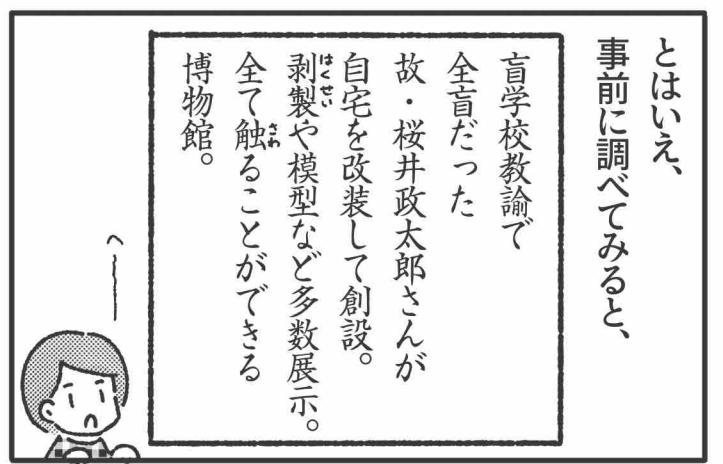 とはいえ、
事前に調べてみると、
盲学校教諭で
全盲だった
故・桜井政太郎さんが
自宅を改装して創設。
剥製や模型など多数展示。
はくせい
全て触ることができる
さわ
博物館。
へー